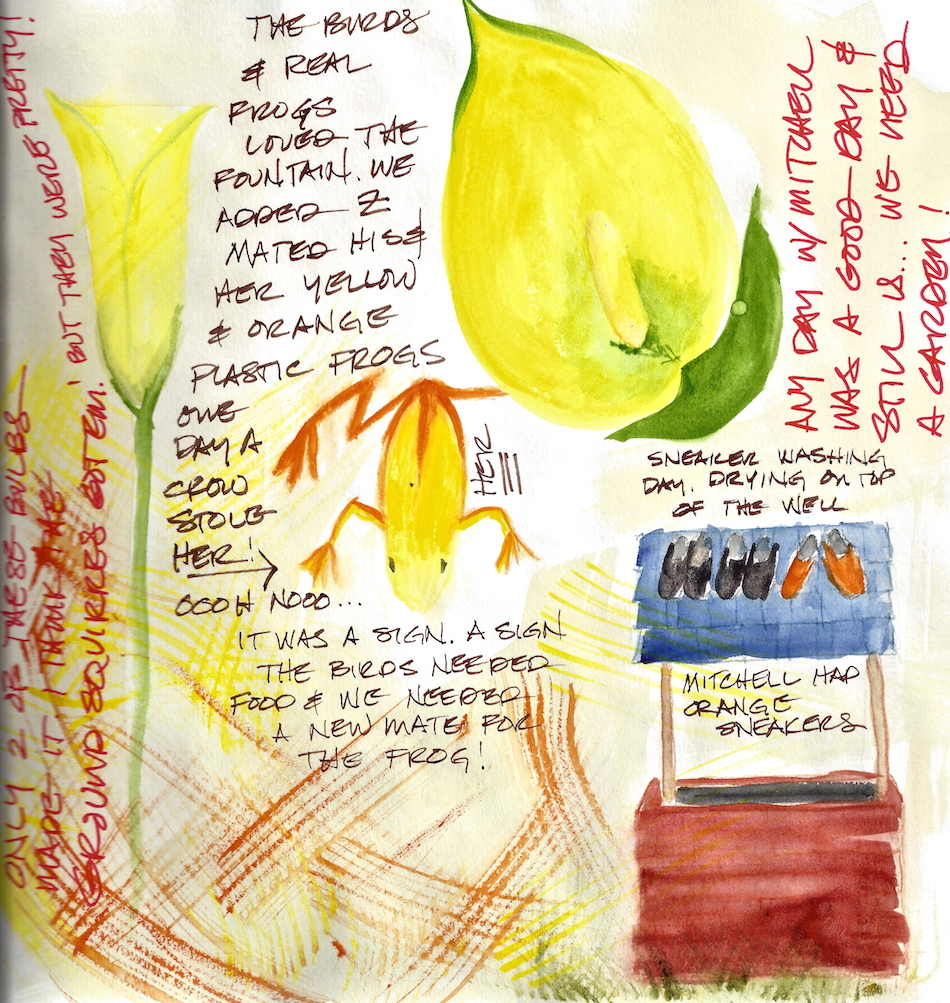 THE BIRDS
& REAL
FROGS
LOVED THE
FOUNTAIN. WE
ADDED 2
MATED HIS &
HER YELLOW
& ORANGE
PLASTIC FROGS
ONE
DAY A
CROW
STOLE
HER!
OOOH NOOO...
IT WAS A SIGN. A SIGN
THE BIRDS NEEDED
FOOD & WE NEEDED
A NEW MATE FOR
THE FROG!
HER
ANY DAY W/ MITCHELL
WAS A GOOD DAY &
STILL IS... WE NEED
A GARDEN!
SNEAKER WASHING
DAY. DRYING ON TOP
OF THE WELL
MITCHELL HAD
ORANGE
SNEAKERS
ONLY 2 OF THESE BULBS
MADE IT. I THINK THE
GROUND SQUIRRES GOT EM! BUT THEY WERE PRETTY!